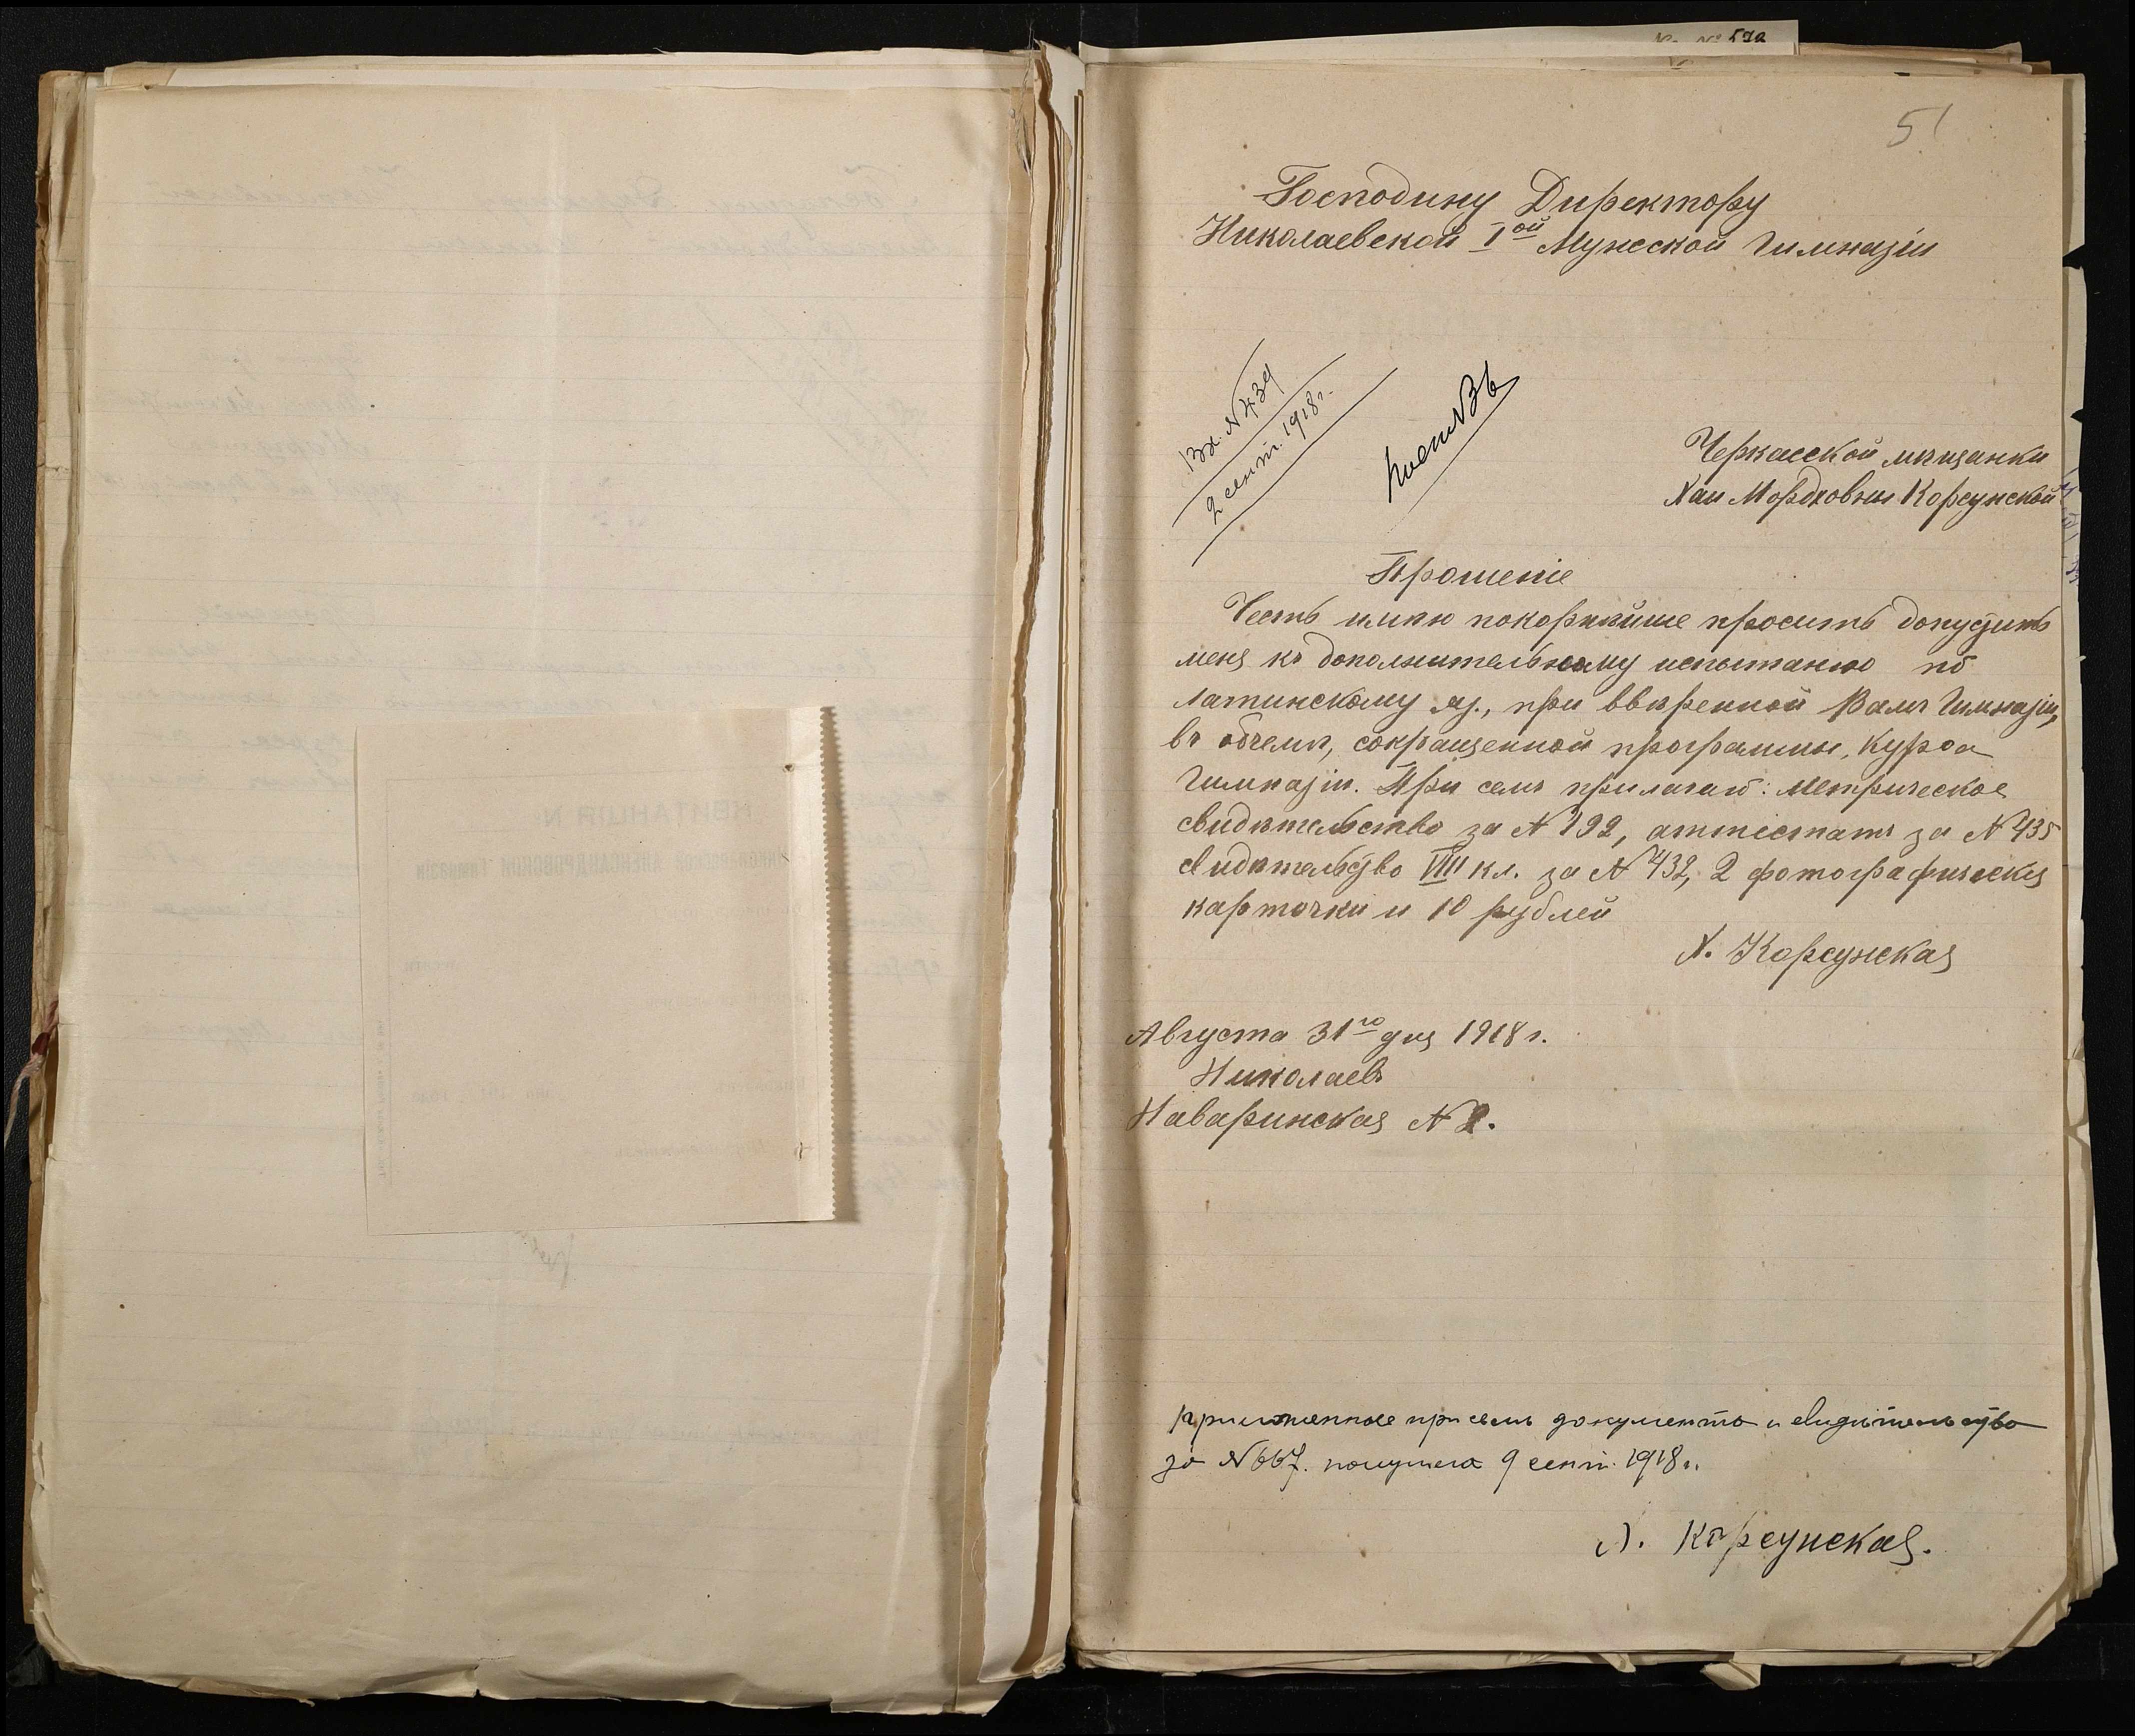 № 592
51
Господину Директору
Николаевской Iой Мужеской Гимназіи
Вх. № 439
2 сент. 1918 г.
Черкасской мѣщанки
Хаи Мордковны Корсунской
Прошеніе
Честь имѣю покорнѣйше просить допустить
меня къ дополнительному испытанію по
латинскому яз., при ввѣренной Вамъ Гимназіи,
въ объемѣ, сокращенной программы, курса
Гимназіи. При семъ прилагаю: Метрическое
свидѣтельство за № 192, аттестатъ за № 435
свидѣтельство VIII кл. за № 432, 2 фотографическія
карточки и 10 рублей
Х. Корсунская
Августа 31го дня 1918 г.
Николаевъ
Наваринская № 2.
Приложенные при семъ документы и свидѣтельство
за № 667. получила 9 сент. 1918 г.
Х. Корсунская.